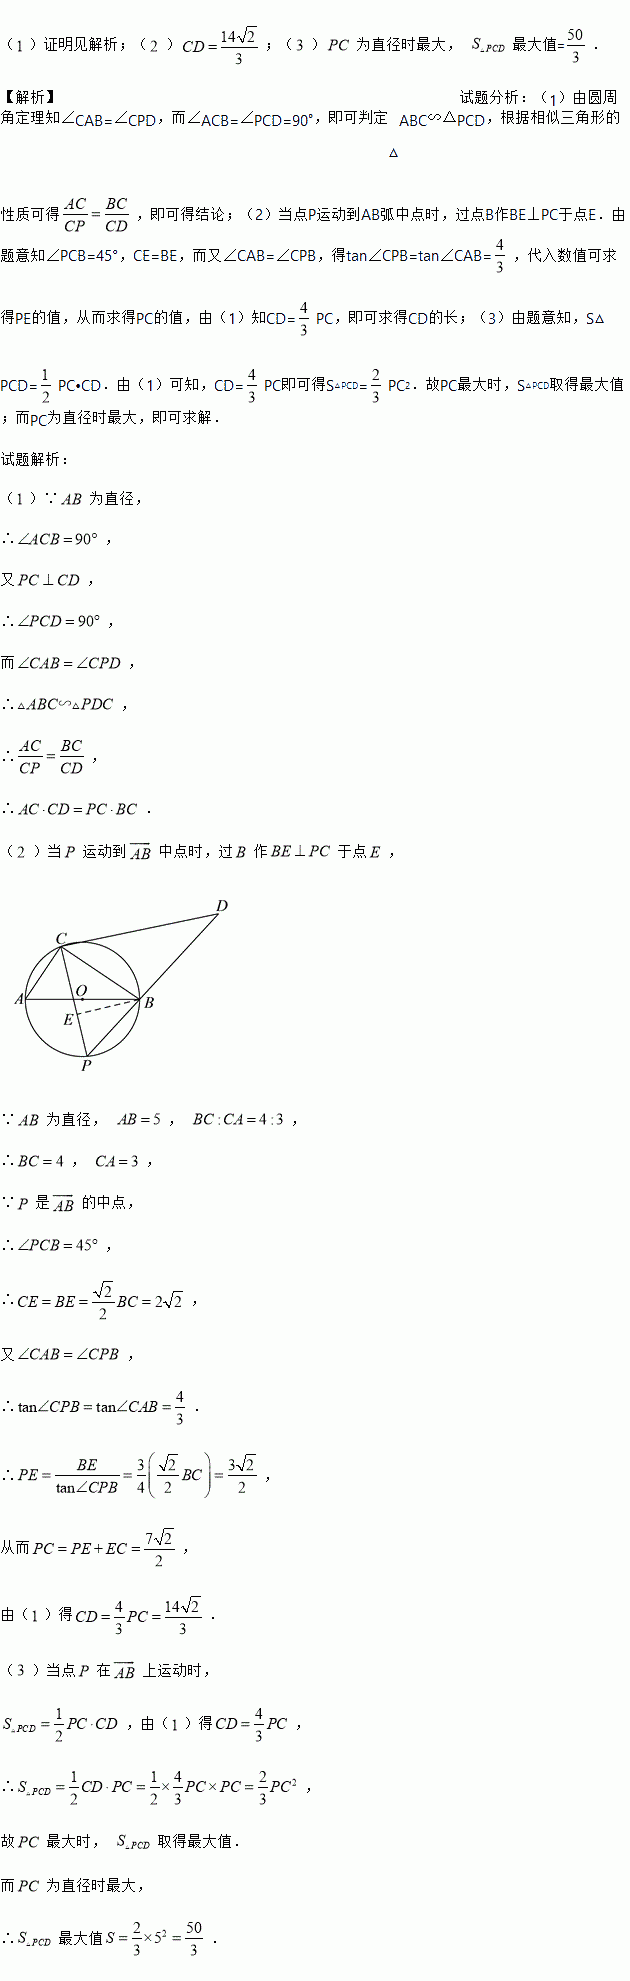 （1）证明见解析；（2）CD=14√2/3；（3）PC 为直径时最大， S△PCD 最大值=50/3．
【解析】 试题分析：（1）由圆周
角定理知∠CAB=∠CPD，而∠ACB=∠PCD=90°，即可判定 ABC∽△PCD，根据相似三角形的
△
性质可得AC/CP=BC/CD，即可得结论；（2）当点P运动到AB弧中点时，过点B作BE⊥PC于点E．由
题意知∠PCB=45°，CE=BE，而又∠CAB=∠CPB，得tan∠CPB=tan∠CAB=4/3，代入数值可求
得PE的值，从而求得PC的值，由（1）知CD=4/3 PC，即可求得CD的长；（3）由题意知，S△
PCD=1/2 PC•CD．由（1）可知，CD=4/3 PC即可得S△PCD=2/3 PC²．故PC最大时，S△PCD取得最大值
；而PC为直径时最大，即可求解．
试题解析：
（1）∵AB 为直径，
∴∠ACB=90°，
又PC⊥CD，
∴∠PCD=90°，
而∠CAB=∠CPD，
∴△ABC∽△PDC，
∴AC/CP=BC/CD，
∴AC·CD=PC·BC．
（2）当P 运动到A͞B 中点时，过B 作BE⊥PC 于点E，
D
C
A
O
B
E
P
∵AB 为直径， AB=5， BC:CA=4:3，
∴BC=4， CA=3，
∵P 是A͞B 的中点，
∴∠PCB=45°，
∴CE=BE=√2/2 BC=2√2，
又∠CAB=∠CPB，
∴tan∠CPB=tan∠CAB=4/3．
∴PE=BE/tan∠CPB=3/4(√2/2 BC)=3√2/2，
从而PC=PE+EC=7√2/2，
由（1）得CD=4/3 PC=14√2/3．
（3）当点P 在A͞B 上运动时，
S△PCD=1/2 PC·CD，由（1）得CD=4/3 PC，
∴S△PCD=1/2 CD·PC=1/2×4/3 PC×PC=2/3 PC²，
故PC 最大时， S△PCD 取得最大值．
而PC 为直径时最大，
∴S△PCD 最大值S=2/3×5²=50/3．